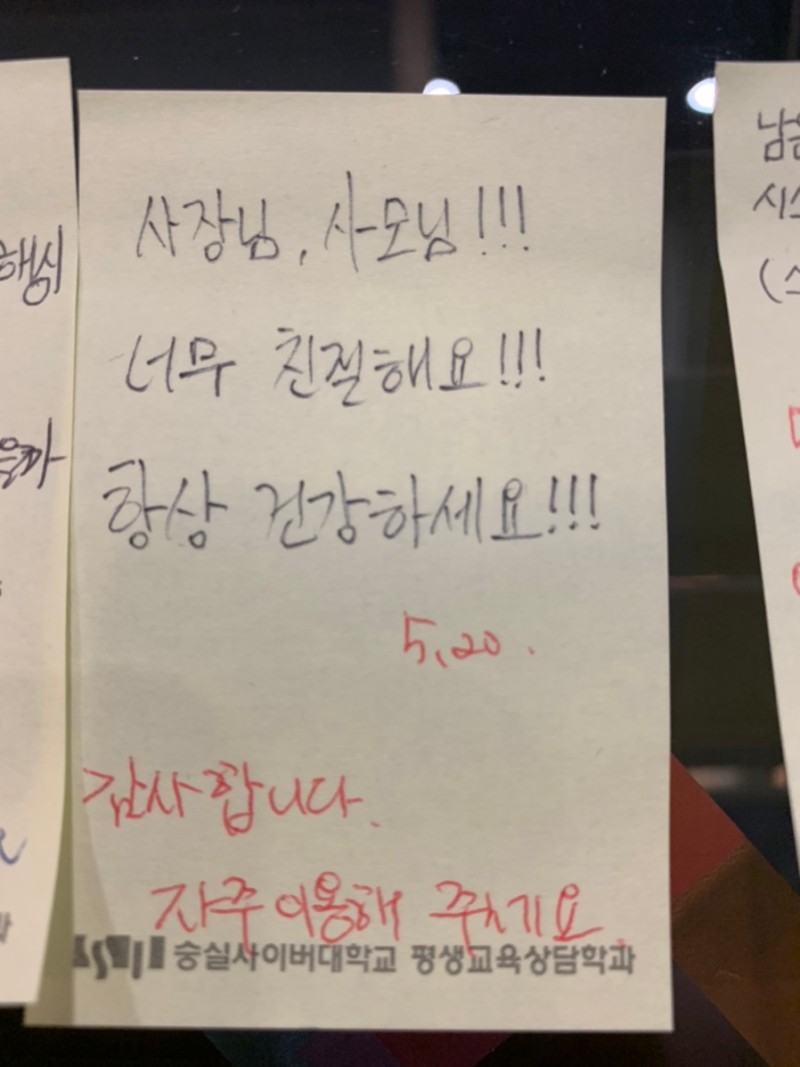 사장님, 사모님!!!
너무 친절해요!!!
항상 건강하세요!!!
5.20.
감사합니다.
자주 이용해 주세요.
숭실사이버대학교 평생교육상담학과
해시
남은
(스